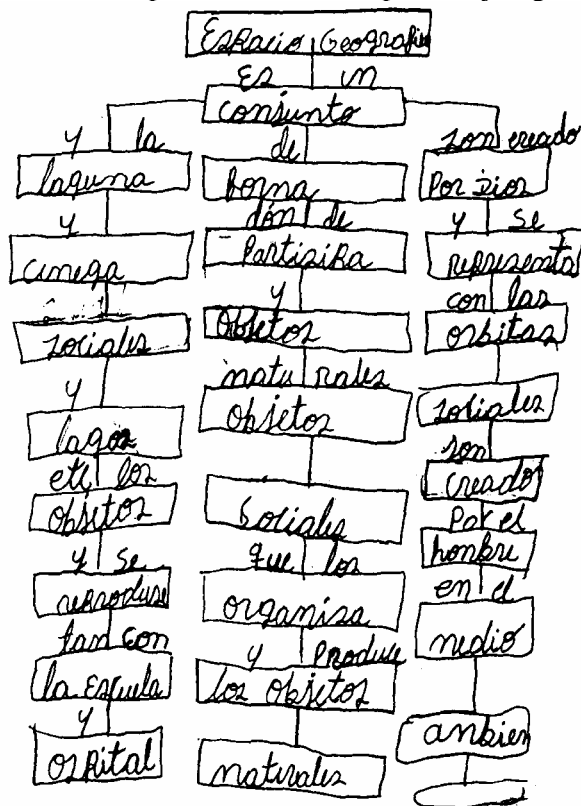 Espacio Geografico
Es un
conjunto
y la
laguna
y
cinega
sociales
y
lagos
etc los
objetos
y se
reproduse
tan con
la Escuela
y
ospital
de
forna
dón de
Partisika
y
Objetos
naturales
objetos
Sociales
que los
organisa
y Produse
los objetos
naturales
son creado
Por Dios
y se
representa
con las
orbitas
sociales
son
creados
Por el
honbre
en el
nedio
anbien